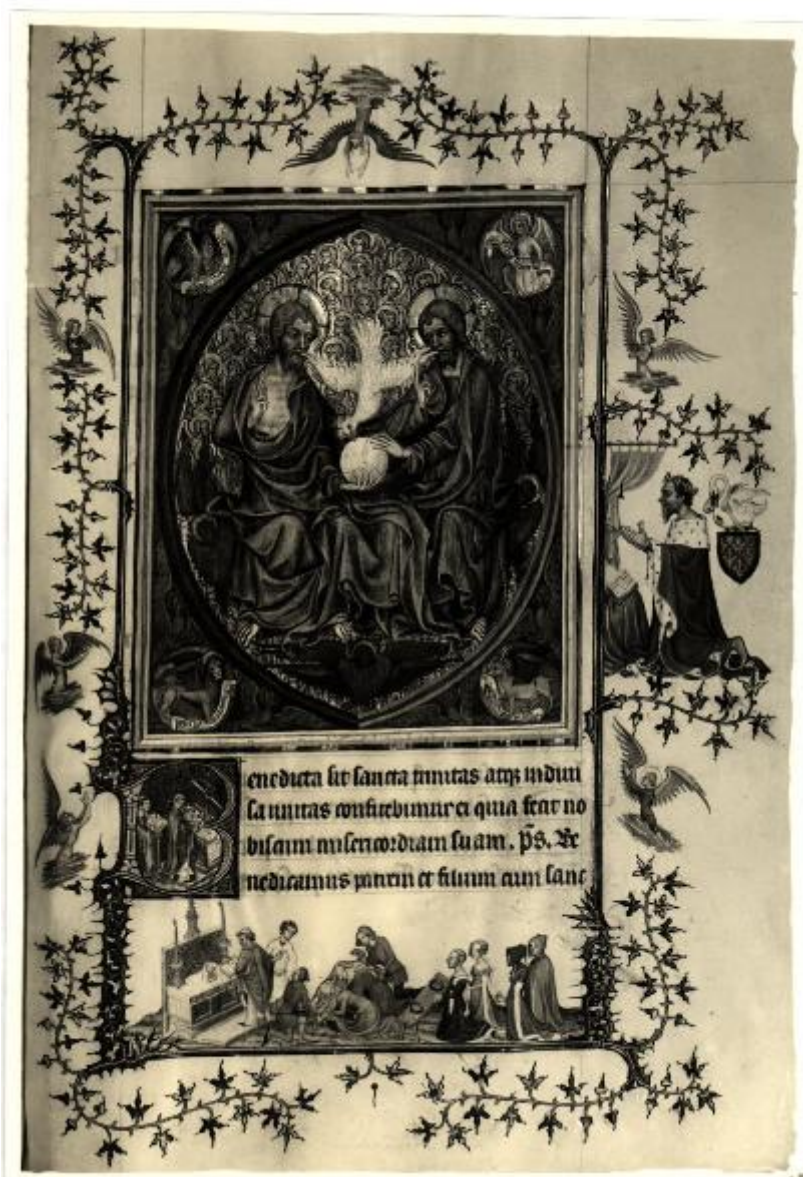 Benedicta sit sancta trinitas atqz indiui
sa unitas confitebimur ei quia fecit no
biscum misericordiam suam. p̄s. Be
nedicamus patrem et filium cum sanc